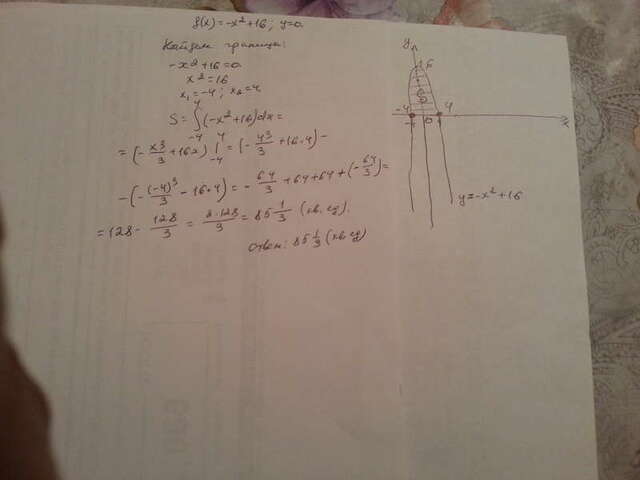 f(x) = -x² + 16; y = 0.
Найдем границы:
-x² + 16 = 0
x² = 16
x₁ = -4; x₂ = 4
S = ∫₋₄⁴ (-x² + 16)dx =
= (-x³/3 + 16x) |₋₄⁴ = (-4³/3 + 16·4) -
-(-(-4)³/3 - 16·4) = -64/3 + 64 + 64 + (-64/3) =
= 128 - 128/3 = 2·128/3 = 85 1/3 (кв. ед).
Ответ: 85 1/3 (кв. ед)
y
16
-4
0
4
x
y = -x² + 16